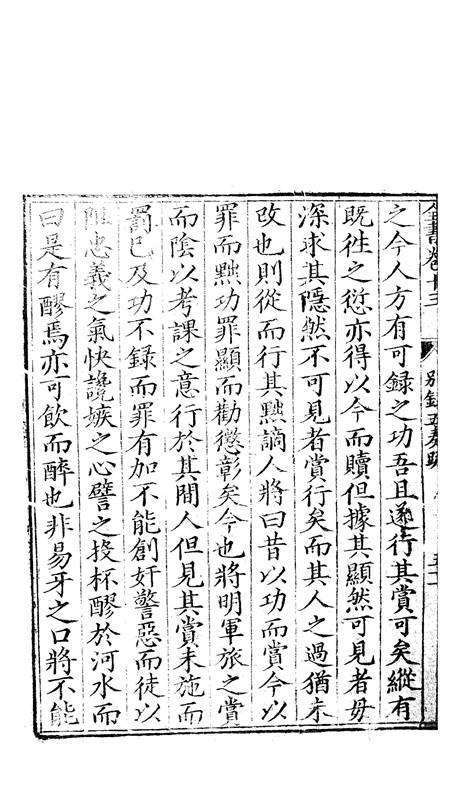 書卷十三 别錄五奏疏
之今人方有可録之功吾且遂行其賞可矣縱有
既徃之愆亦得以今而贖但據其顯然可見者毋
深求其隱然不可見者賞行矣而其人之過猶未
改也則從而行其黜謫人將曰昔以功而賞今以
罪而黜功罪顯而勸懲彰矣今也將明軍旅之賞
而陰以考課之意行於其間人但見其賞未施而
罰已及功不録而罪有加不能創奸警惡而徒以
阻忠義之氣快讒嫉之心譬之投杯醪於河水而
曰是有醪焉亦可飲而醉也非易牙之口將不能